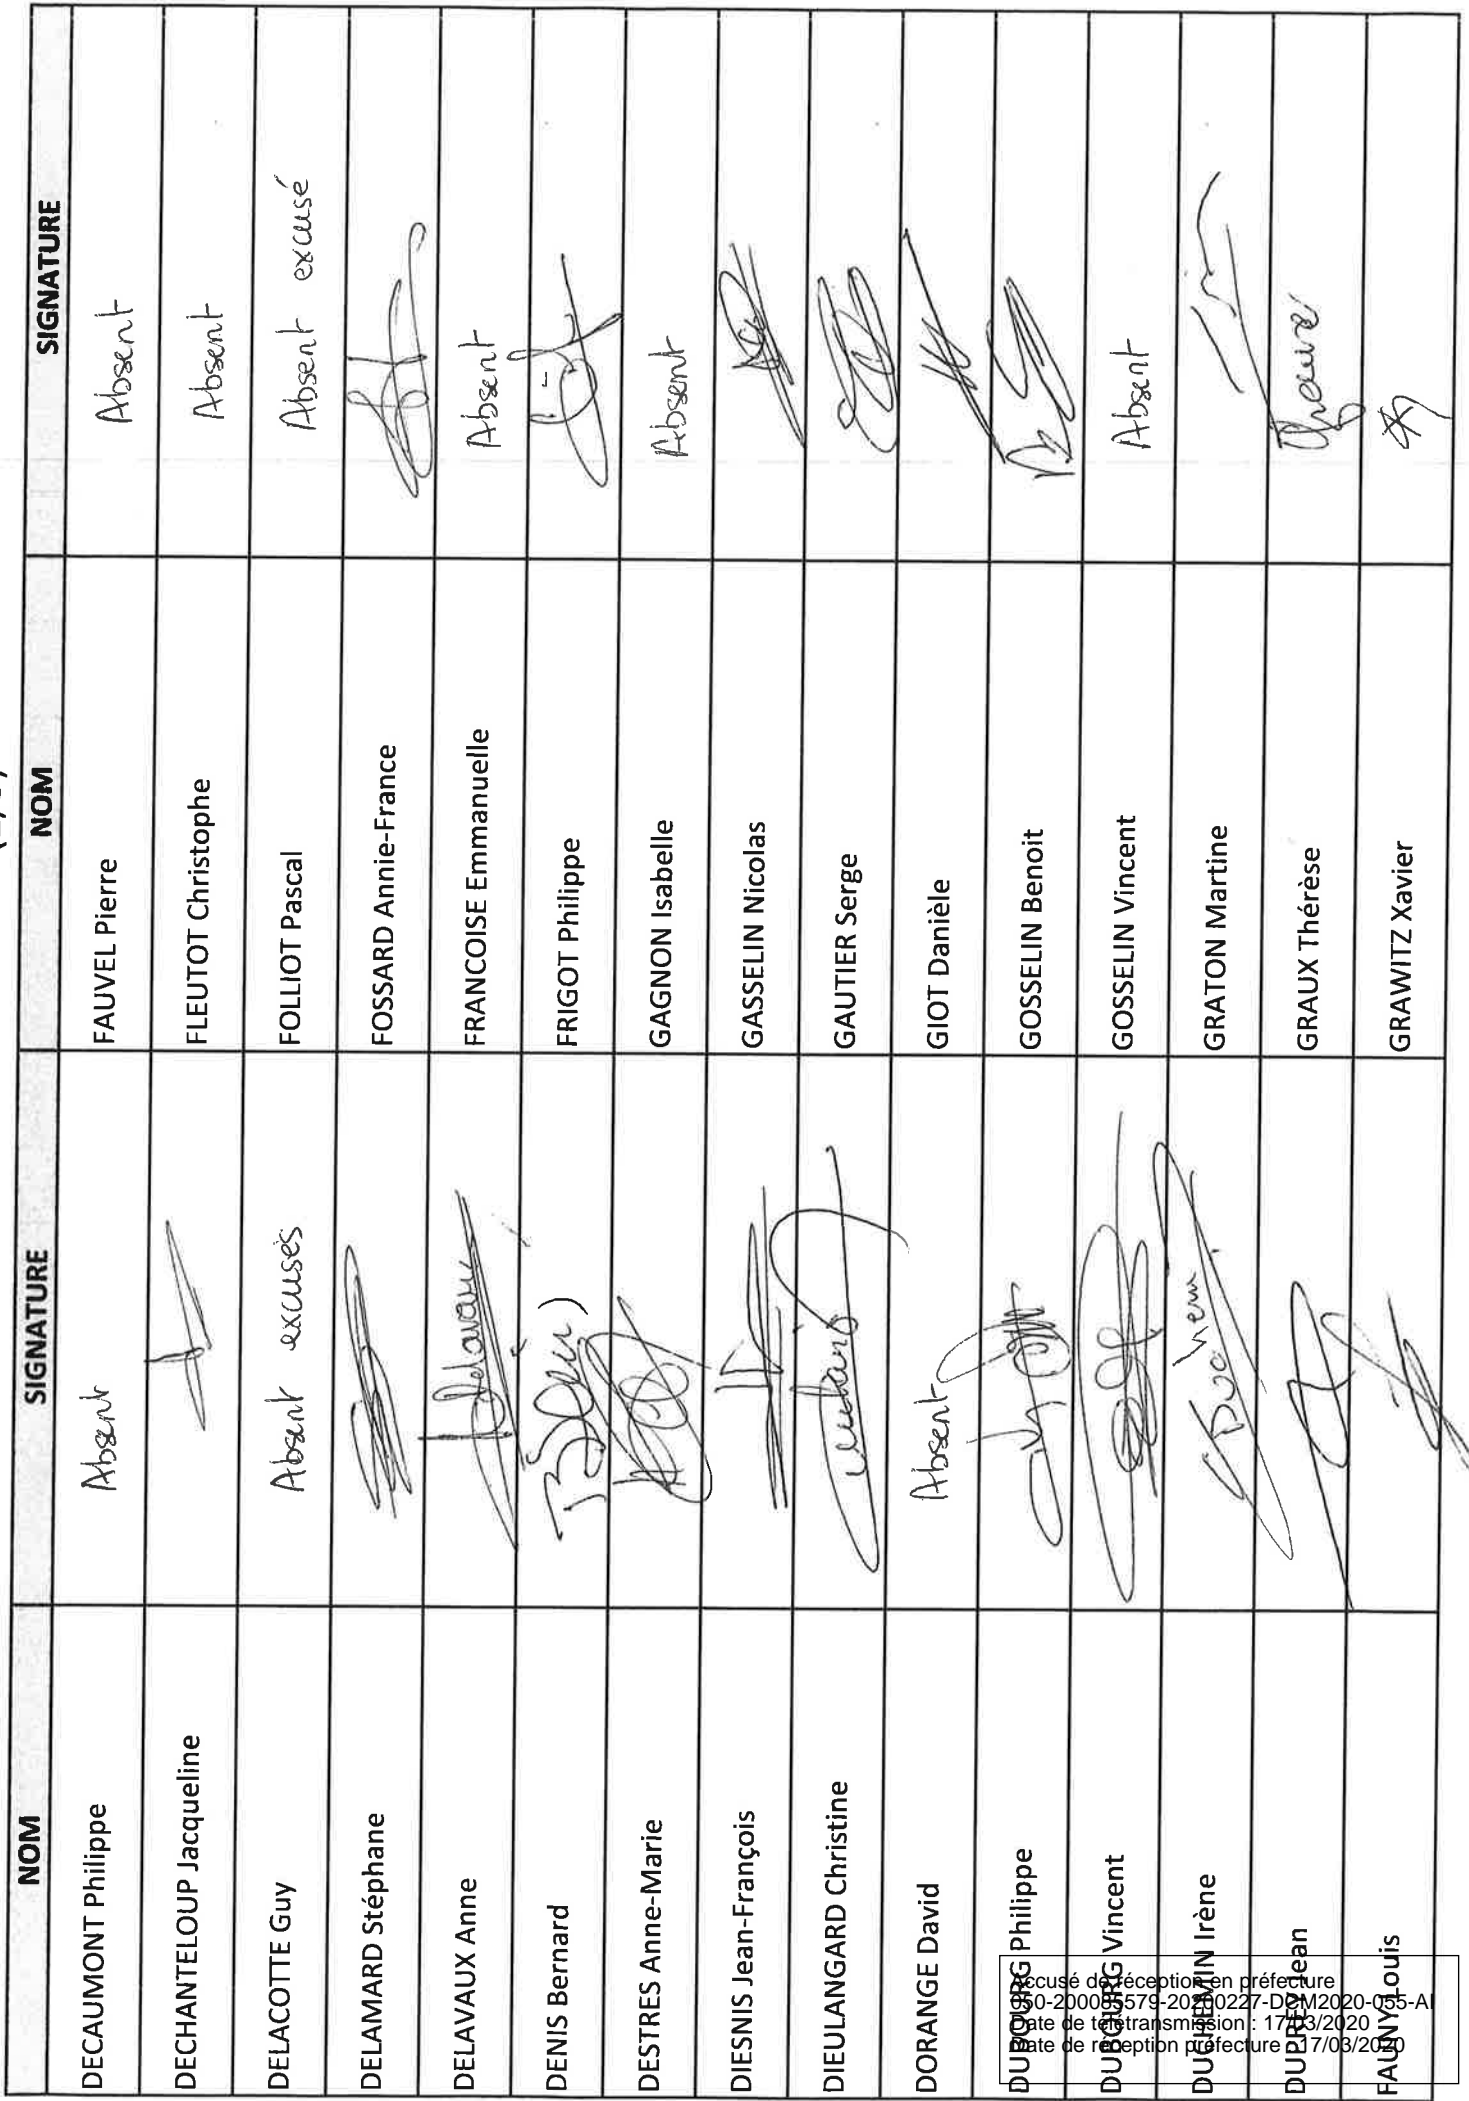 NOM SIGNATURE NOM SIGNATURE
DECAUMONT Philippe Absent FAUVEL Pierre Absent
DECHANTELOUP Jacqueline FLEUTOT Christophe Absent
DELACOTTE Guy Absent excusés FOLLIOT Pascal Absent excusé
DELAMARD Stéphane FOSSARD Annie-France
DELAVAUX Anne Delavaux FRANCOISE Emmanuelle Absent
DENIS Bernard FRIGOT Philippe
DESTRES Anne-Marie GAGNON Isabelle Absent
DIESNIS Jean-François GASSELIN Nicolas
DIEULANGARD Christine GAUTIER Serge
DORANGE David Absent GIOT Danièle
DUBOURG Philippe GOSSELIN Benoit
DUBOURG Vincent GOSSELIN Vincent Absent
DUCHEMIN Irène GRATON Martine
DUPREY Jean GRAUX Thérèse
FAUNY Louis GRAWITZ Xavier
Accusé de réception en préfecture
050-200085579-20200227-DCM2020-055-AI
Date de télétransmission : 17/03/2020
Date de réception préfecture : 17/03/2020